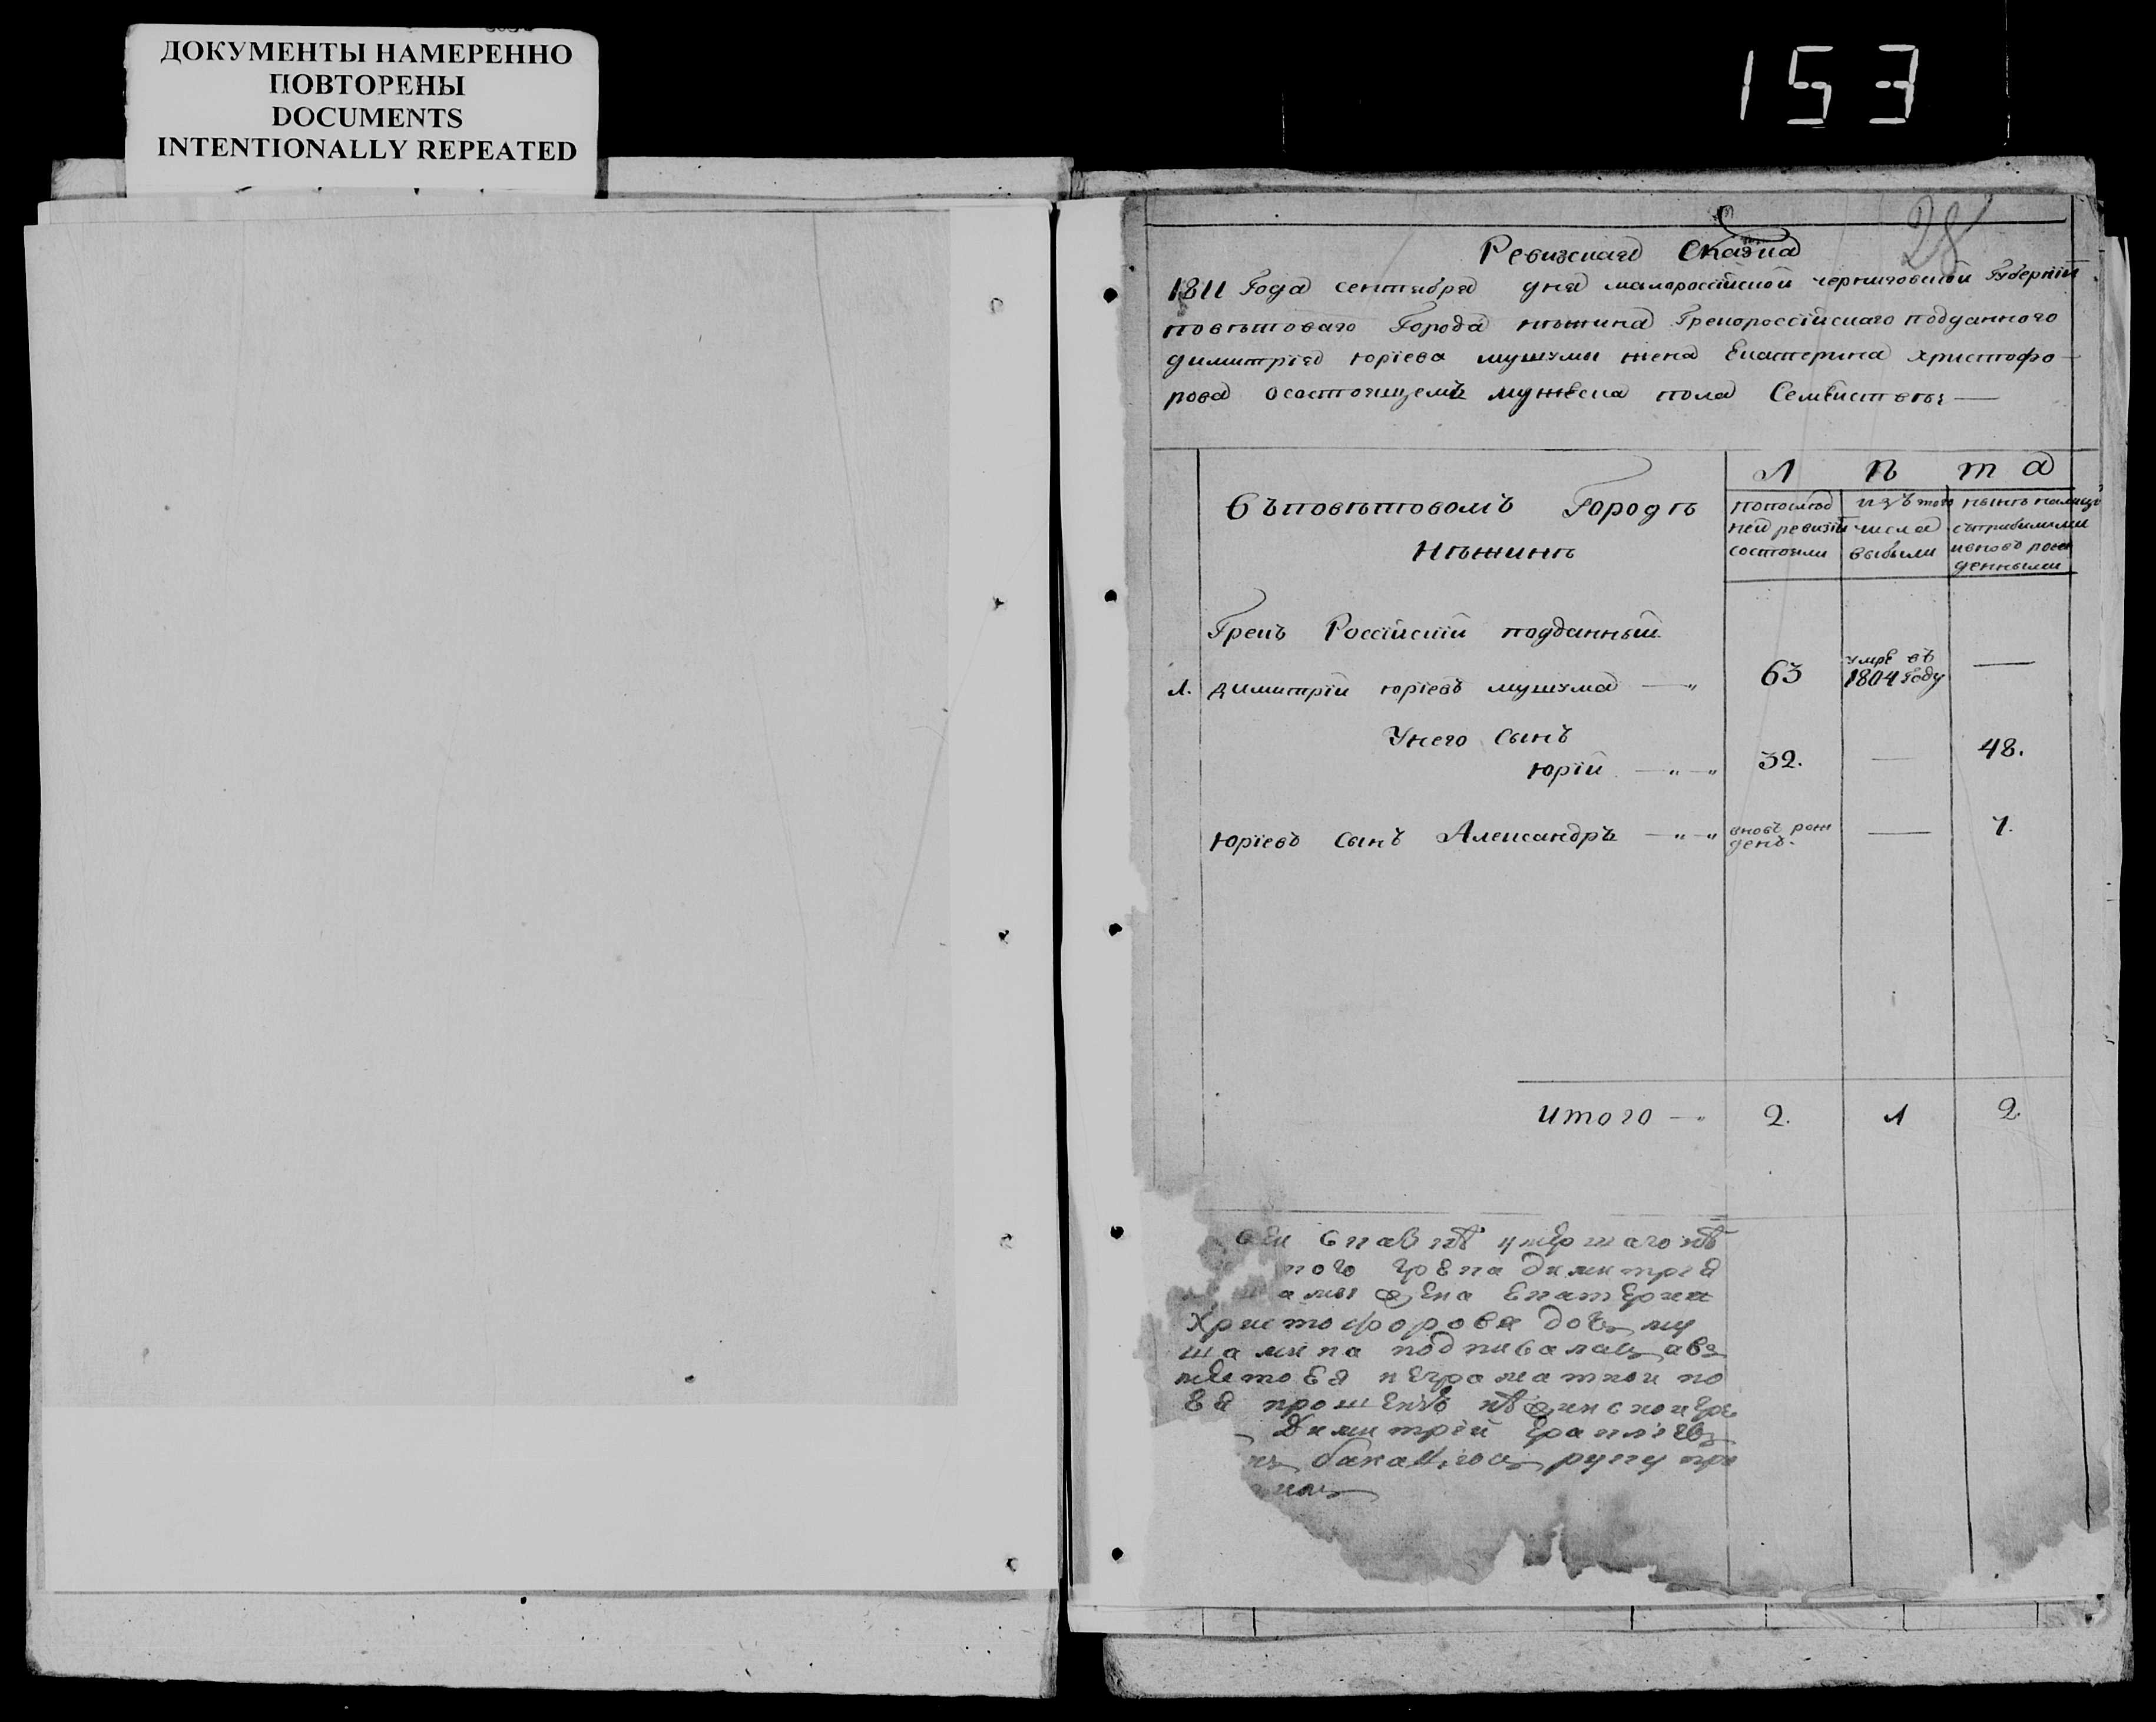 ДОКУМЕНТЫ НАМЕРЕННО
ПОВТОРЕНЫ
DOCUMENTS
INTENTIONALLY REPEATED
153
28
Ревизская Сказка
1811 Года сентября дня малороссійской черниговской Губерніи
повѣтоваго Города нѣжина Грекороссійскаго подданного
димитрія юріева мушумы жена Екатерина христофо-
рова осостоящемъ мужеска пола Семействѣ:
Л ѣ т а
Въ повѣтовомъ Городѣ
Нѣжинѣ
попослѣд
ней ревизіи
состояли
изъ того
числа
выбыли
нынѣ налицо
съприбылыми
ивновь рож
денными
Грекъ Россійскій подданный
1. димитрій юріевъ мушума 63 умре въ 1804 году —
Унего Сынъ
юрій 32. — 48.
юріевъ Сынъ Александръ вновь рож
денъ. — 7.
итого 2. 1 2.
умершаго нѣ
грека димитрія
жена Екатерина
Христофорова дочь му
подписалась авъ
место ея неграматной по
Ея прошенію нѣжинской гре
Димитрій
руку при